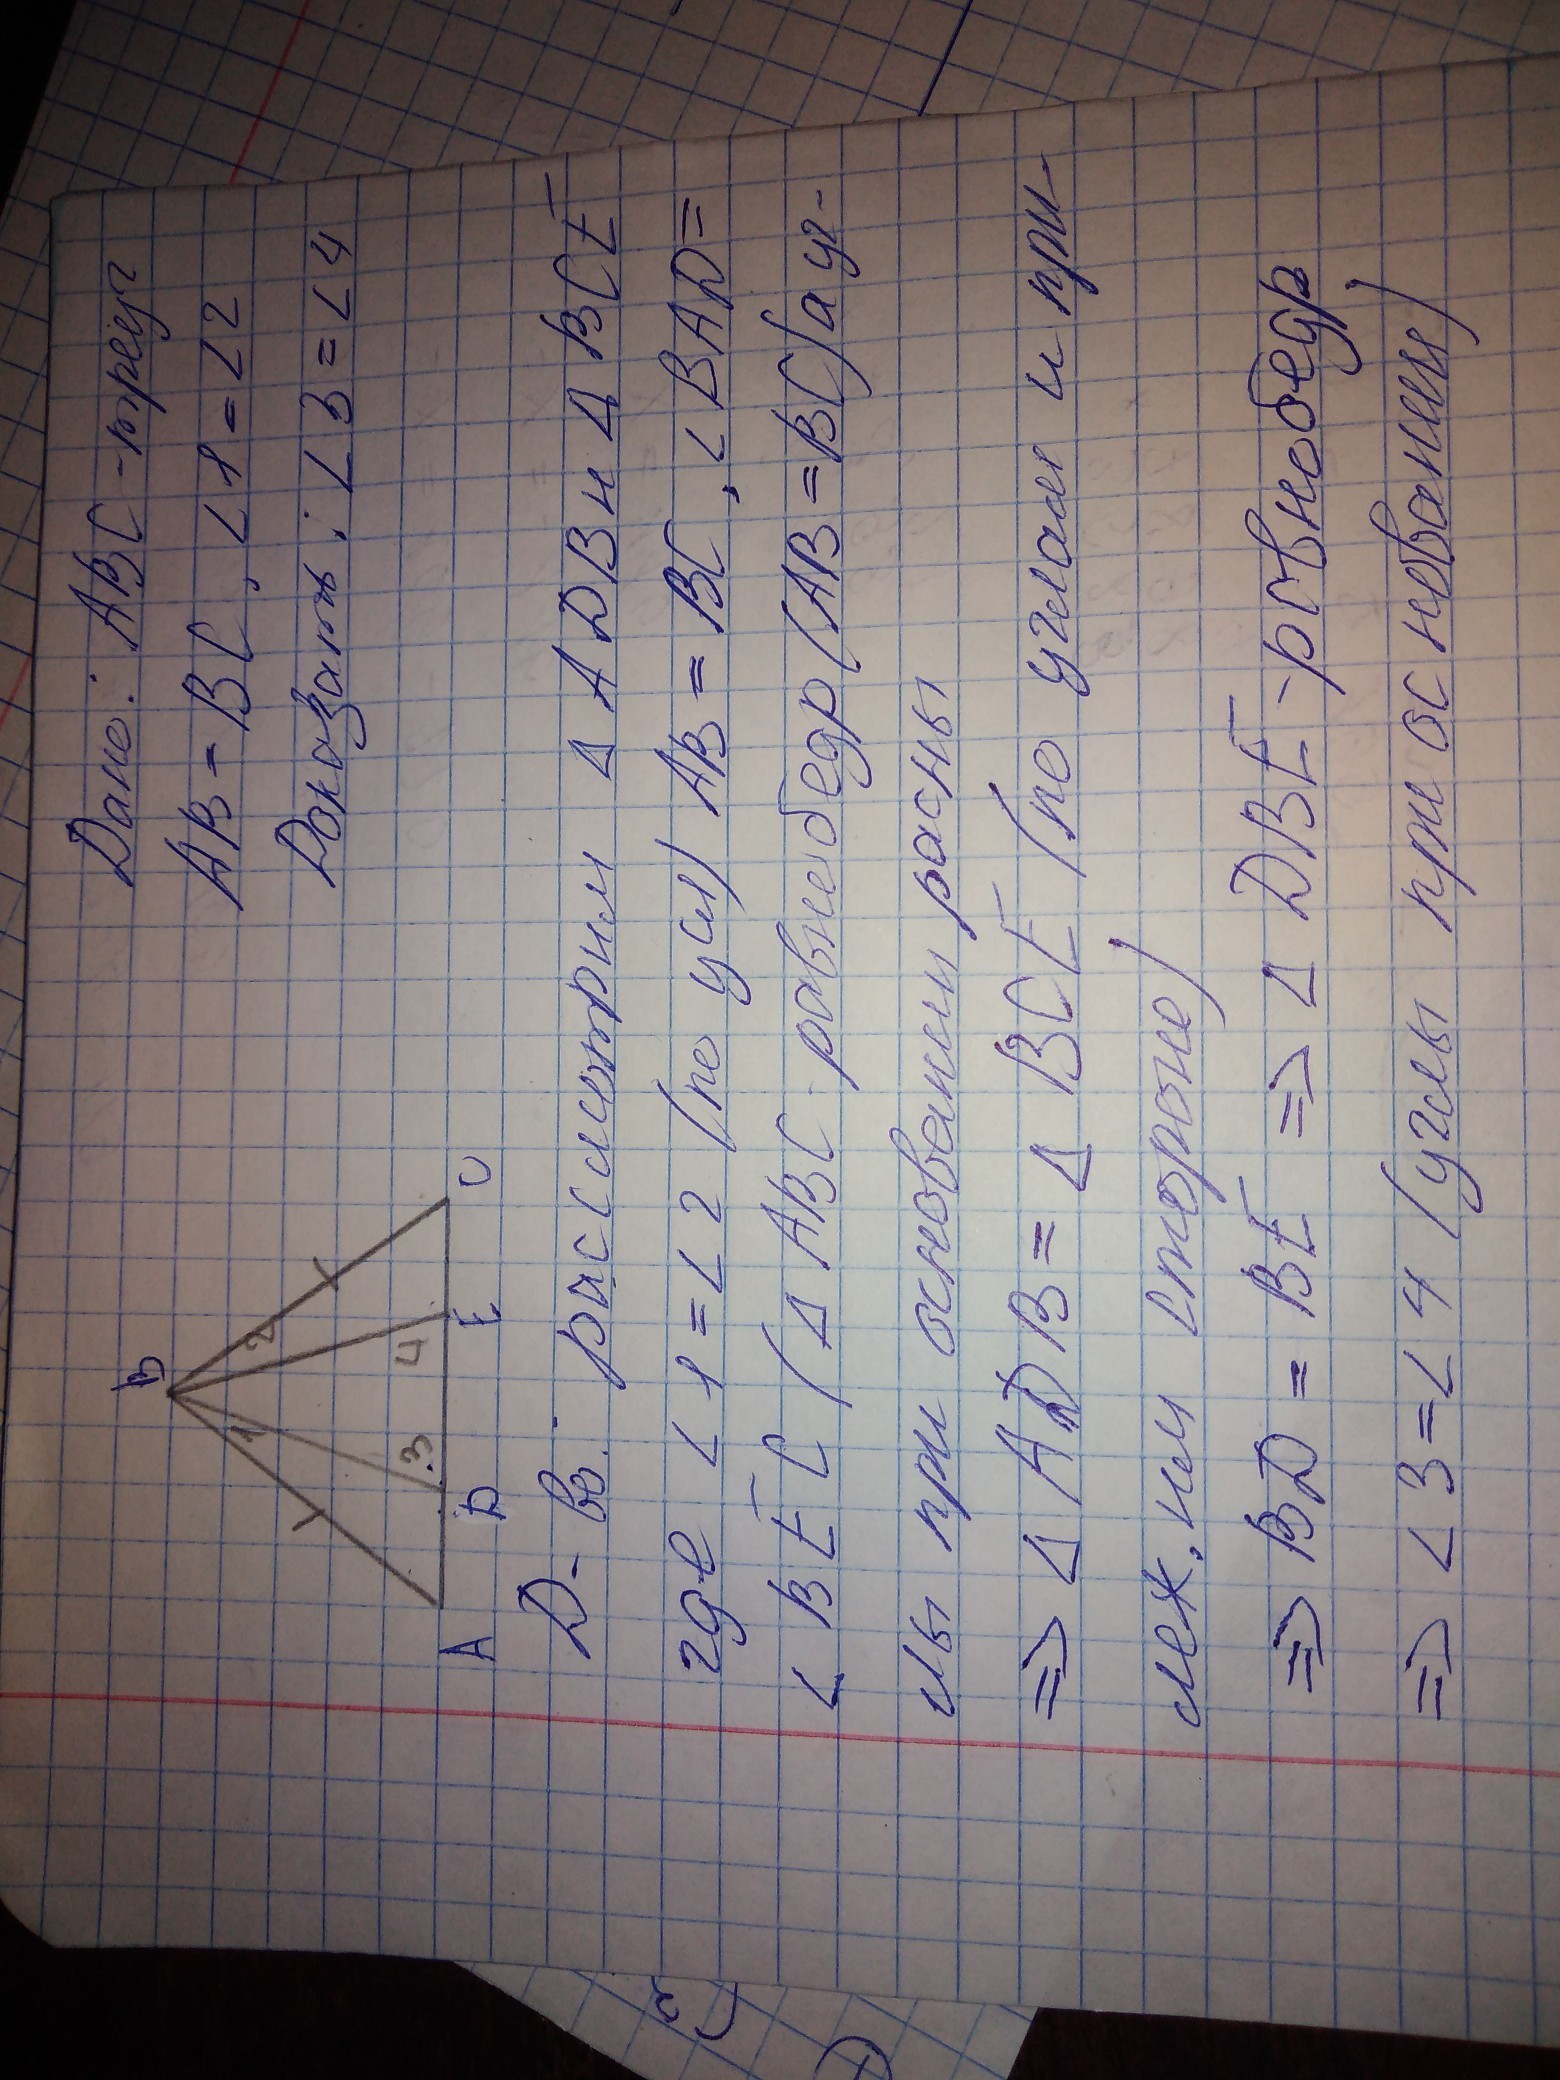 Дано: ABC - треуг
AB = BC, ∠1 = ∠2
Доказать: ∠3 = ∠4
B
1
2
3
4
A
D
E
C
D-во: рассмотрим Δ ADB и Δ BCE
где ∠1 = ∠2 (по усл) AB = BC, ∠BAD =
∠BEC (Δ ABC равнобедр (AB = BC) а уг-
лы при основании расны
=> Δ ADB = Δ BCE (по углам и при-
леж, им стороне)
=> BD = BE => Δ DBE - ровнобедр
=> ∠3 = ∠4 (углы при основании)